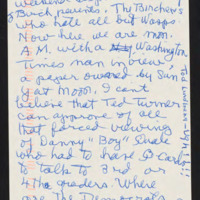 Bush, parents - The Birchers
who hate all but Wasps
Now here we are mon.
A.M. with a Washington
Times man in view,
a paper owned by Sun
yat Moon. I can't
believe that Ted Turner
can approve of all
that forced viewing
of Danny "Boy" Quale
who had to have
to talk to 3rd or
4th graders. Where
are the Democrats